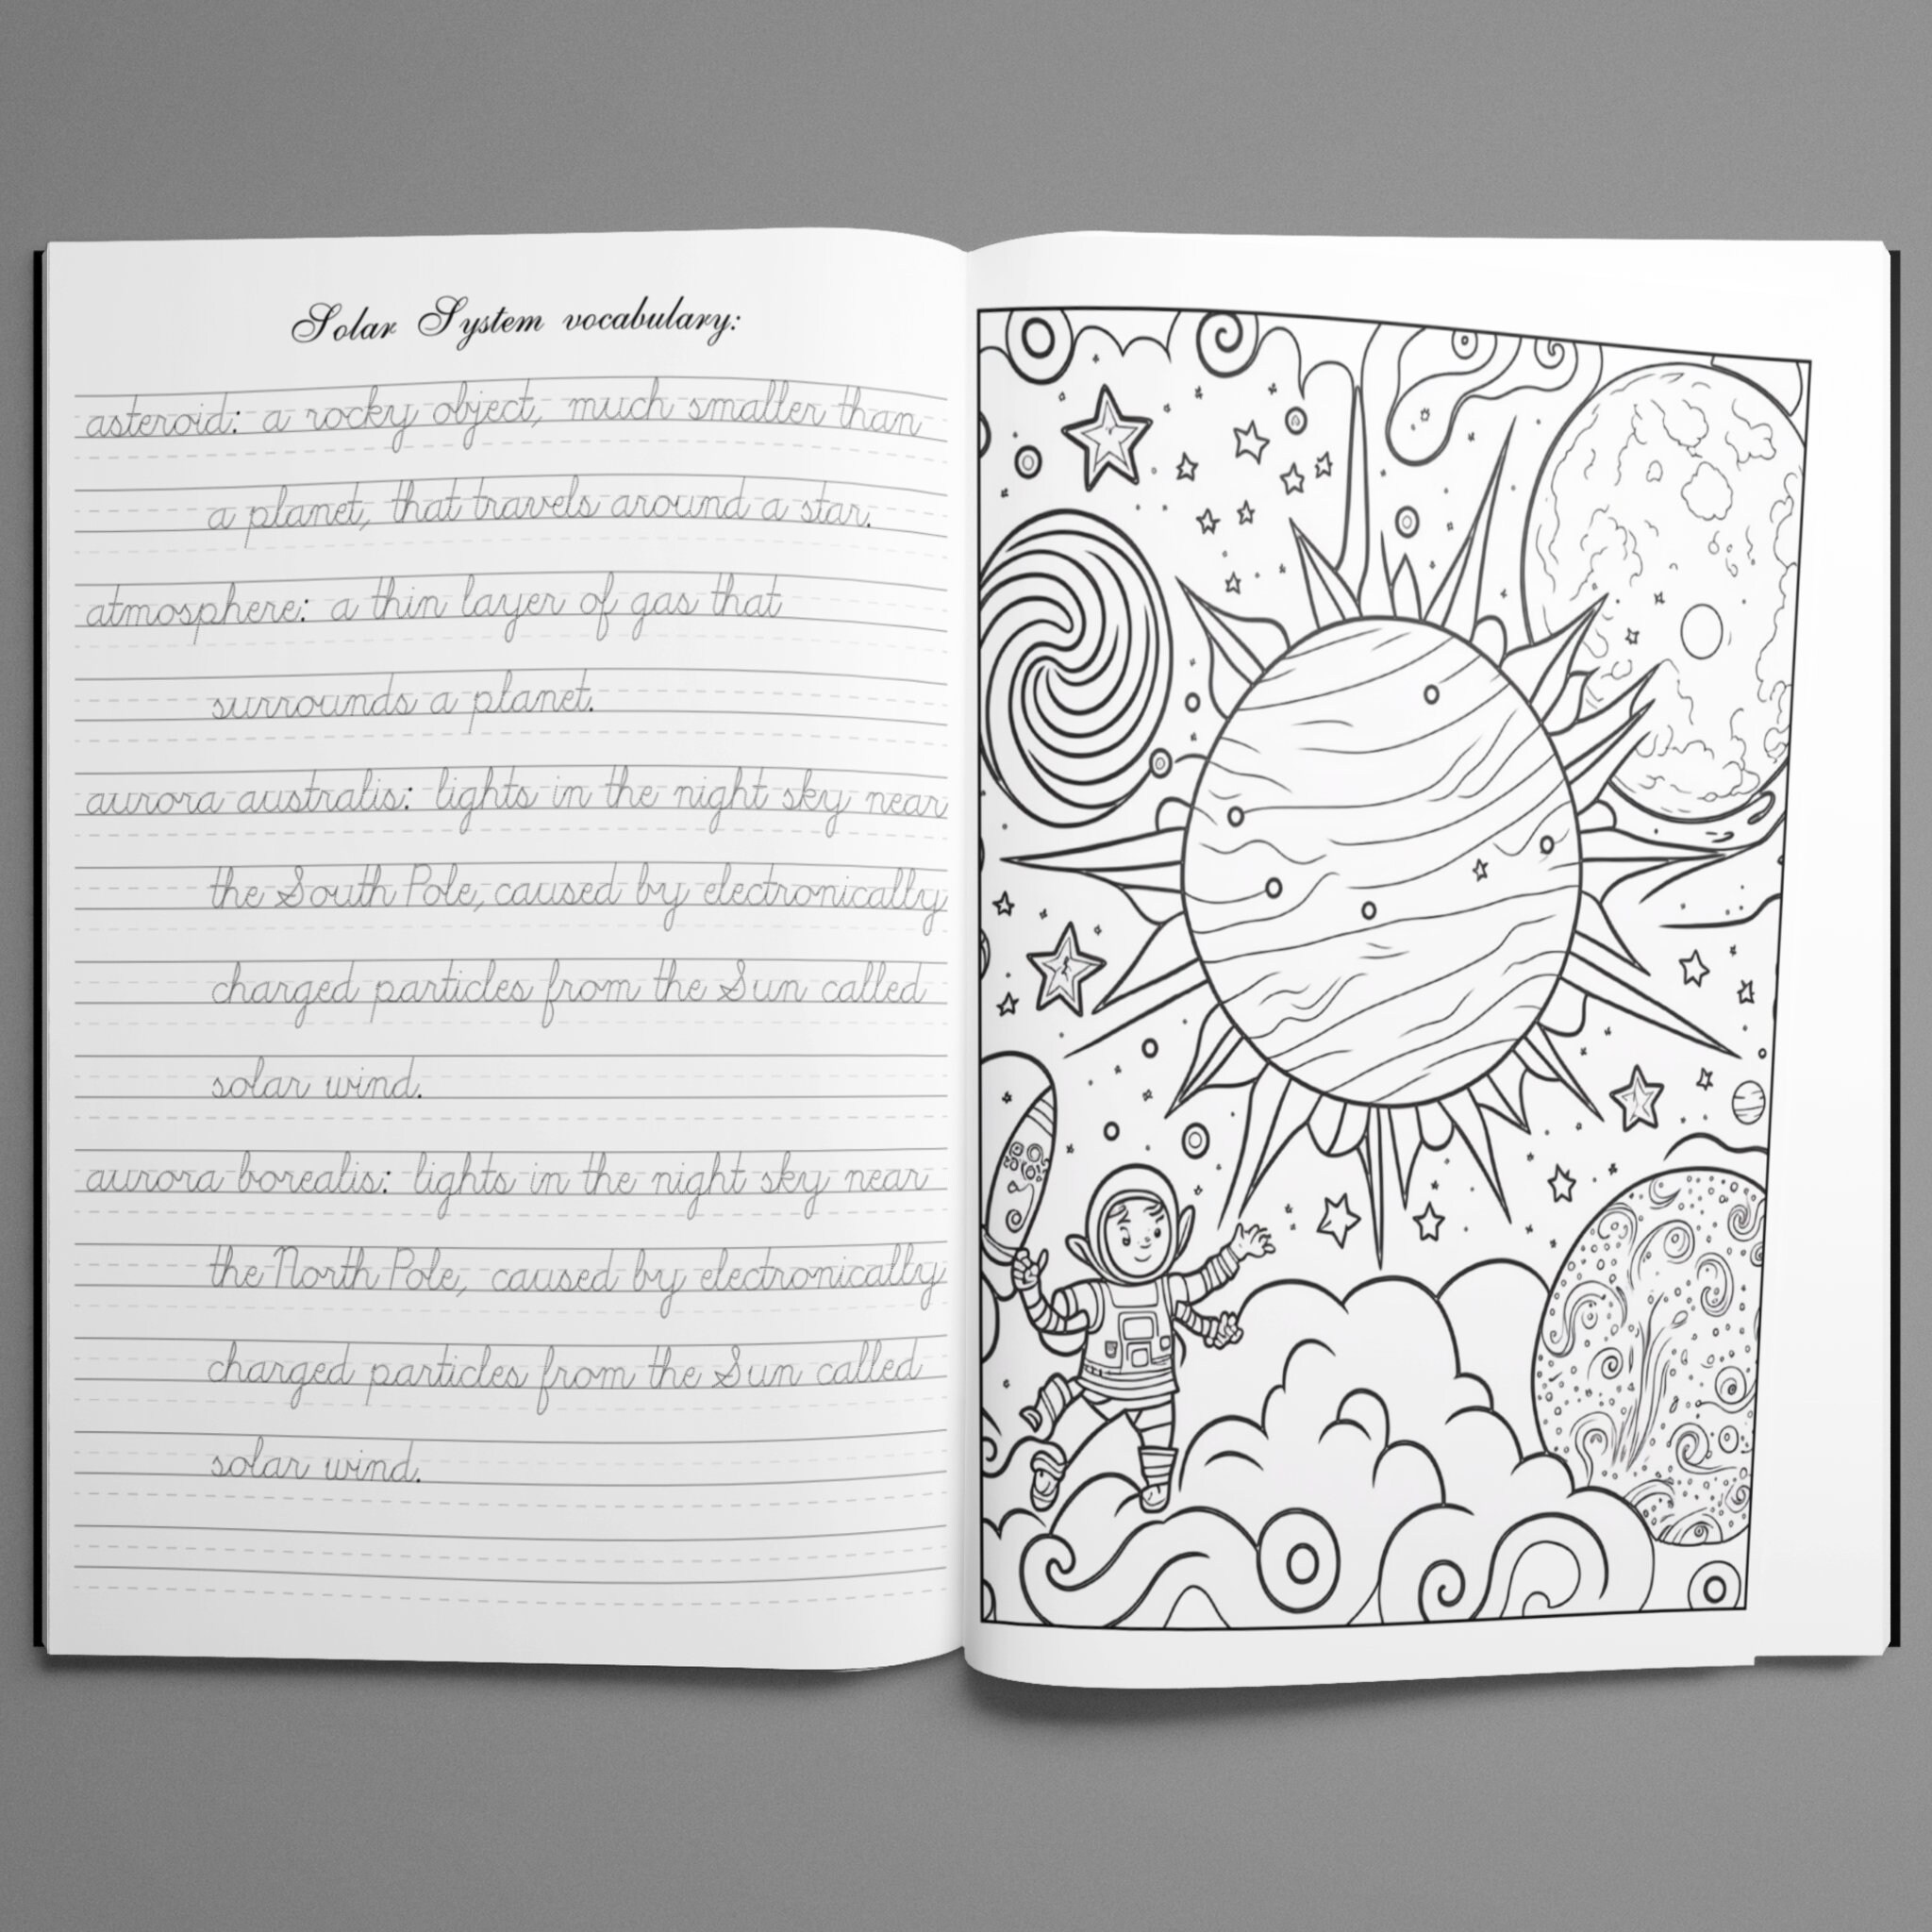 Solar System vocabulary:
asteroid: a rocky object, much smaller than
a planet, that travels around a star.
atmosphere: a thin layer of gas that
surrounds a planet.
aurora australis: lights in the night sky near
the South Pole, caused by electronically
charged particles from the Sun called
solar wind.
aurora borealis: lights in the night sky near
the North Pole, caused by electronically
charged particles from the Sun called
solar wind.